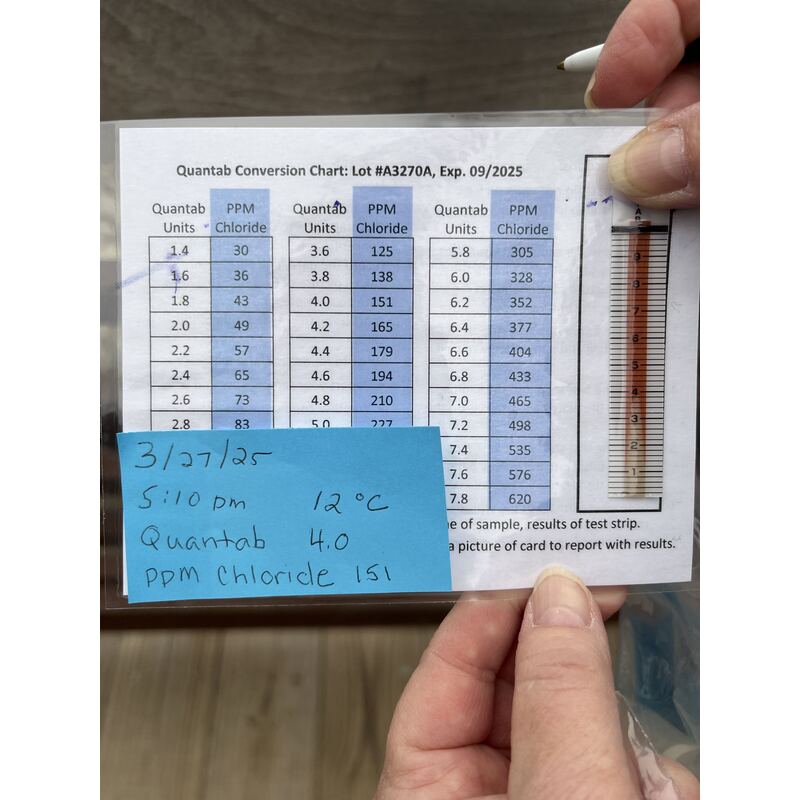 Quantab Conversion Chart: Lot #A3270A, Exp. 09/2025
Quantab Units PPM Chloride
1.4 30
1.6 36
1.8 43
2.0 49
2.2 57
2.4 65
2.6 73
2.8 83
Quantab Units PPM Chloride
3.6 125
3.8 138
4.0 151
4.2 165
4.4 179
4.6 194
4.8 210
5.0 227
Quantab Units PPM Chloride
5.8 305
6.0 328
6.2 352
6.4 377
6.6 404
6.8 433
7.0 465
7.2 498
7.4 535
7.6 576
7.8 620
9
8
7
6
5
4
3
2
1
3/27/25
5:10 pm 12 °C
Quantab 4.0
PPM Chloride 151
of sample, results of test strip.
a picture of card to report with results.